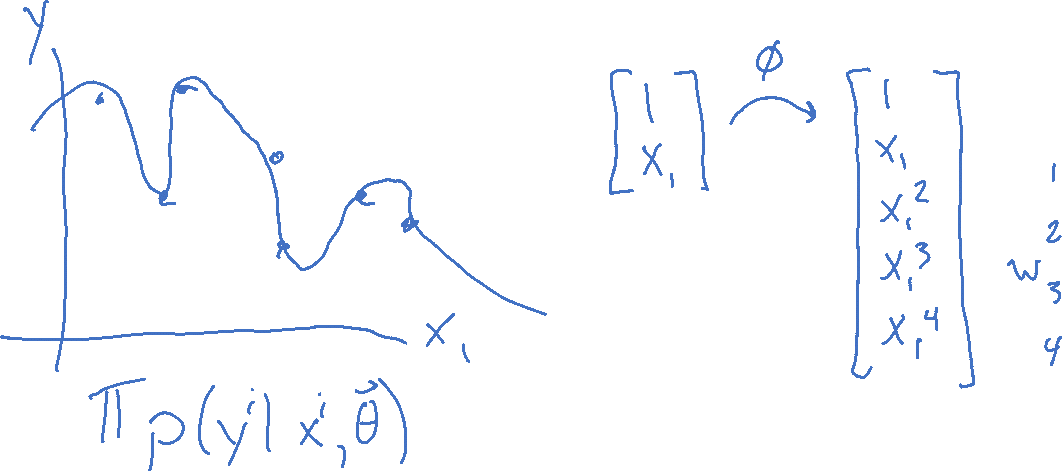 y
x₁
∏ p(yⁱ | xⁱ, θ⃗)
[1
x₁]
ϕ
[1
x₁
x₁²
x₁³
x₁⁴]
1
2
w₃
4